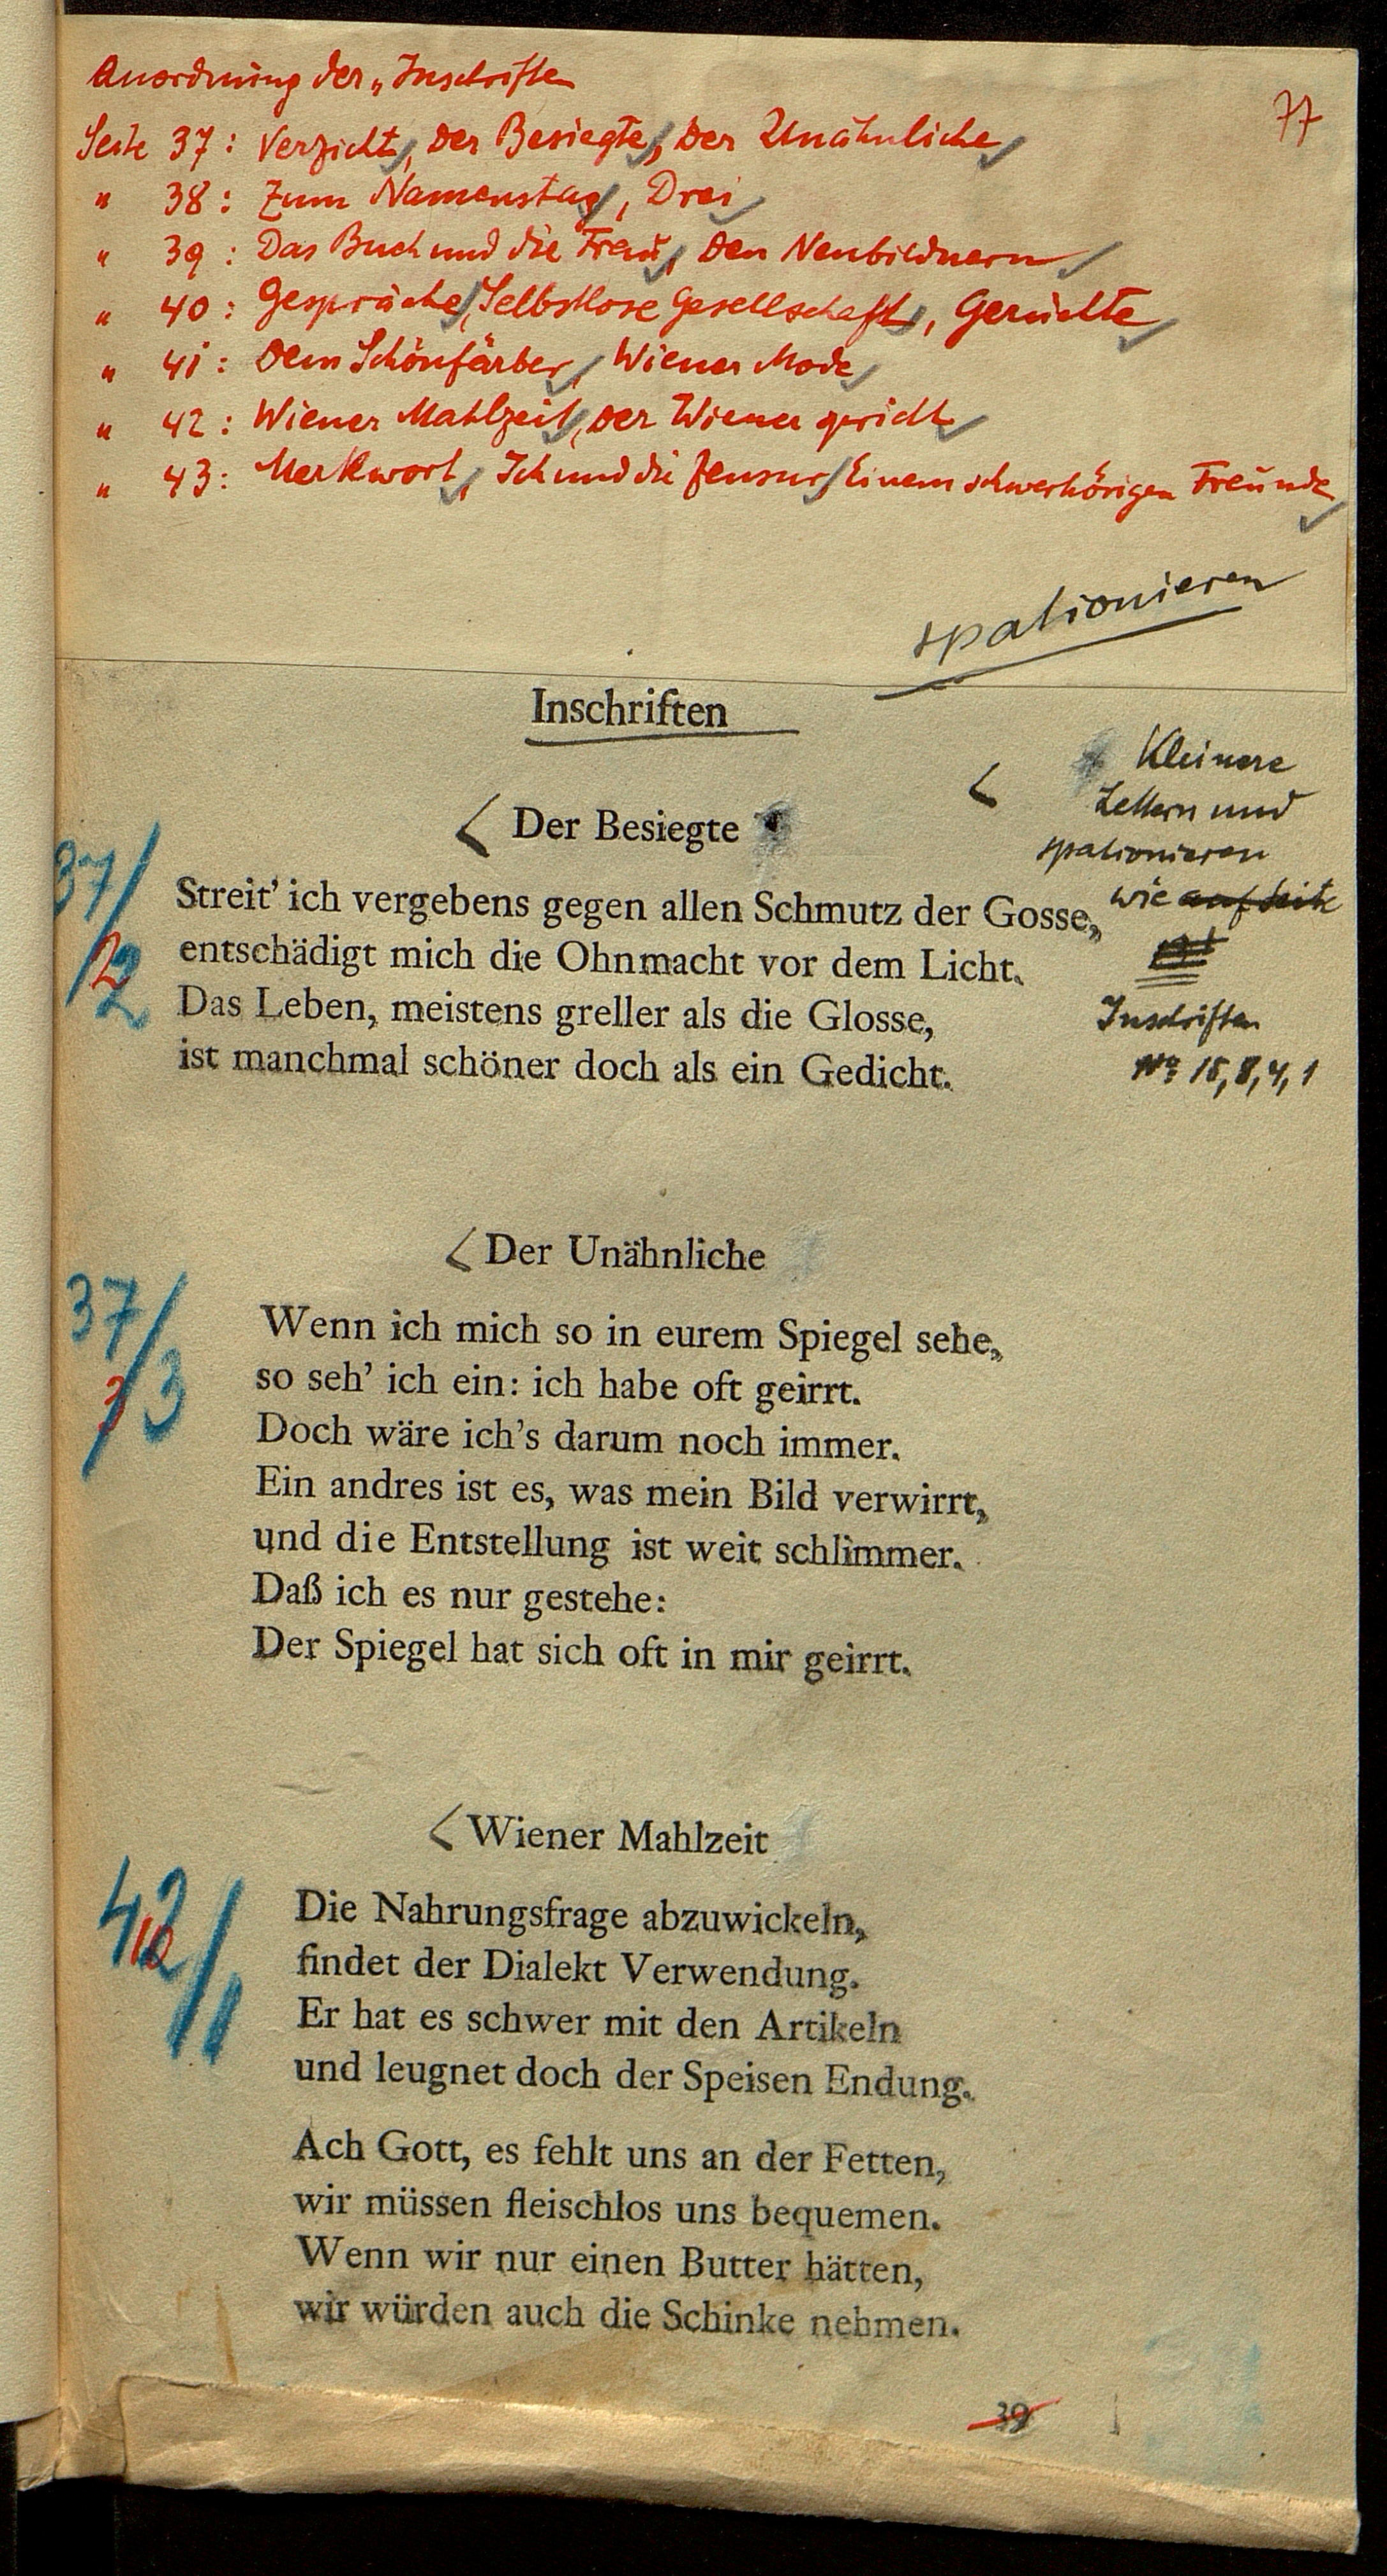 77
Anordnung der „Inschriften
Seite 37: Verzicht, Der Besiegte, Der Unähnliche
" 38: Zum Namenstag, Drei
" 39: Das Buch und die Frau, Den Neubildnern
" 40: Gespräche, Selbstlose Gesellschaft, Gerüchte
" 41: Dem Schönfärber, Wiener Mode
" 42: Wiener Mahlzeit, Der Wiener spricht
" 43: Merkwort, Ich und die Zensur, Einem schwerhörigen Freunde
spationieren
Inschriften
Kleinere
Lettern und
spationieren
wie auf Seite
Inschriften
No 15, 8, 4, 1
Der Besiegte
37/2
2
Streit' ich vergebens gegen allen Schmutz der Gosse,
entschädigt mich die Ohnmacht vor dem Licht.
Das Leben, meistens greller als die Glosse,
ist manchmal schöner doch als ein Gedicht.
Der Unähnliche
37/3
3
Wenn ich mich so in eurem Spiegel sehe,
so seh' ich ein: ich habe oft geirrt.
Doch wäre ich's darum noch immer.
Ein andres ist es, was mein Bild verwirrt,
und die Entstellung ist weit schlimmer.
Daß ich es nur gestehe:
Der Spiegel hat sich oft in mir geirrt.
Wiener Mahlzeit
42/1
Die Nahrungsfrage abzuwickeln,
findet der Dialekt Verwendung.
Er hat es schwer mit den Artikeln
und leugnet doch der Speisen Endung.
Ach Gott, es fehlt uns an der Fetten,
wir müssen fleischlos uns bequemen.
Wenn wir nur einen Butter hätten,
wir würden auch die Schinke nehmen.
39